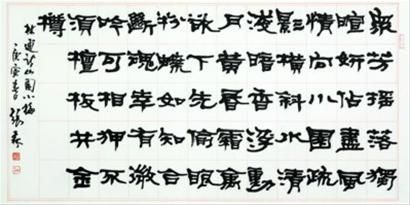 衆芳摇落獨
暄妍佔盡風
情向小園疏
影横斜水清
淺暗香浮動
月黄昏霜禽
欲下先偷眼
粉蝶如知合
斷魂幸有微
吟可相狎不
須檀板共金
樽
林逋詩山園小梅
庚寅春日張森